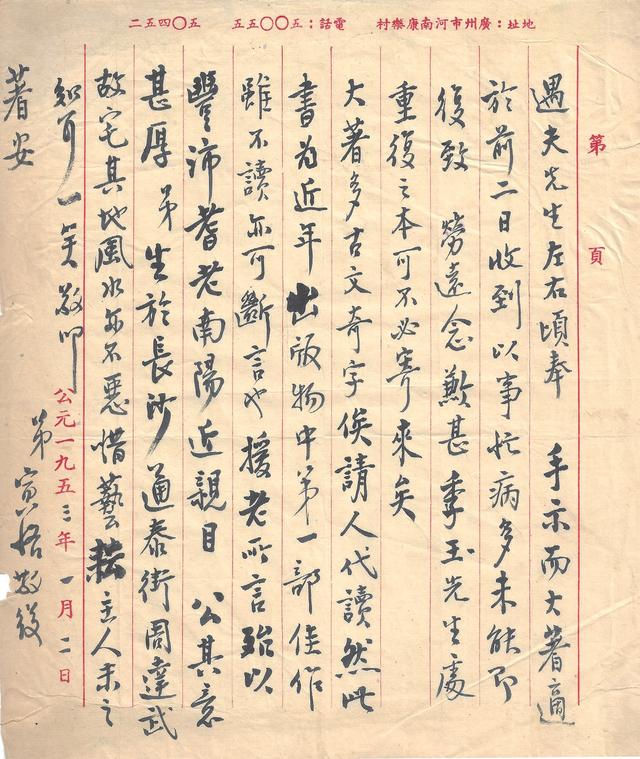 地址：廣州市河南康樂村　電話：五〇〇五五　五〇四五二
第　頁
遇夫先生左右頃奉　手示而大著適
於前二日收到以事忙病多未能即
復致　勞遠念歉甚季玉先生處
重復之本可不必寄來矣
大著多古文奇字俟請人代讀然此
書为近年出版物中第一部佳作
雖不讀亦可斷言也援老所言殆以
豐沛耆老南陽近親目　公其意
甚厚　弟生於長沙通泰街周達武
故宅其地風水亦不惡惜藝耘主人未之
知耳一笑敬叩
著安
弟寅恪敬復
公元一九五三年一月二日